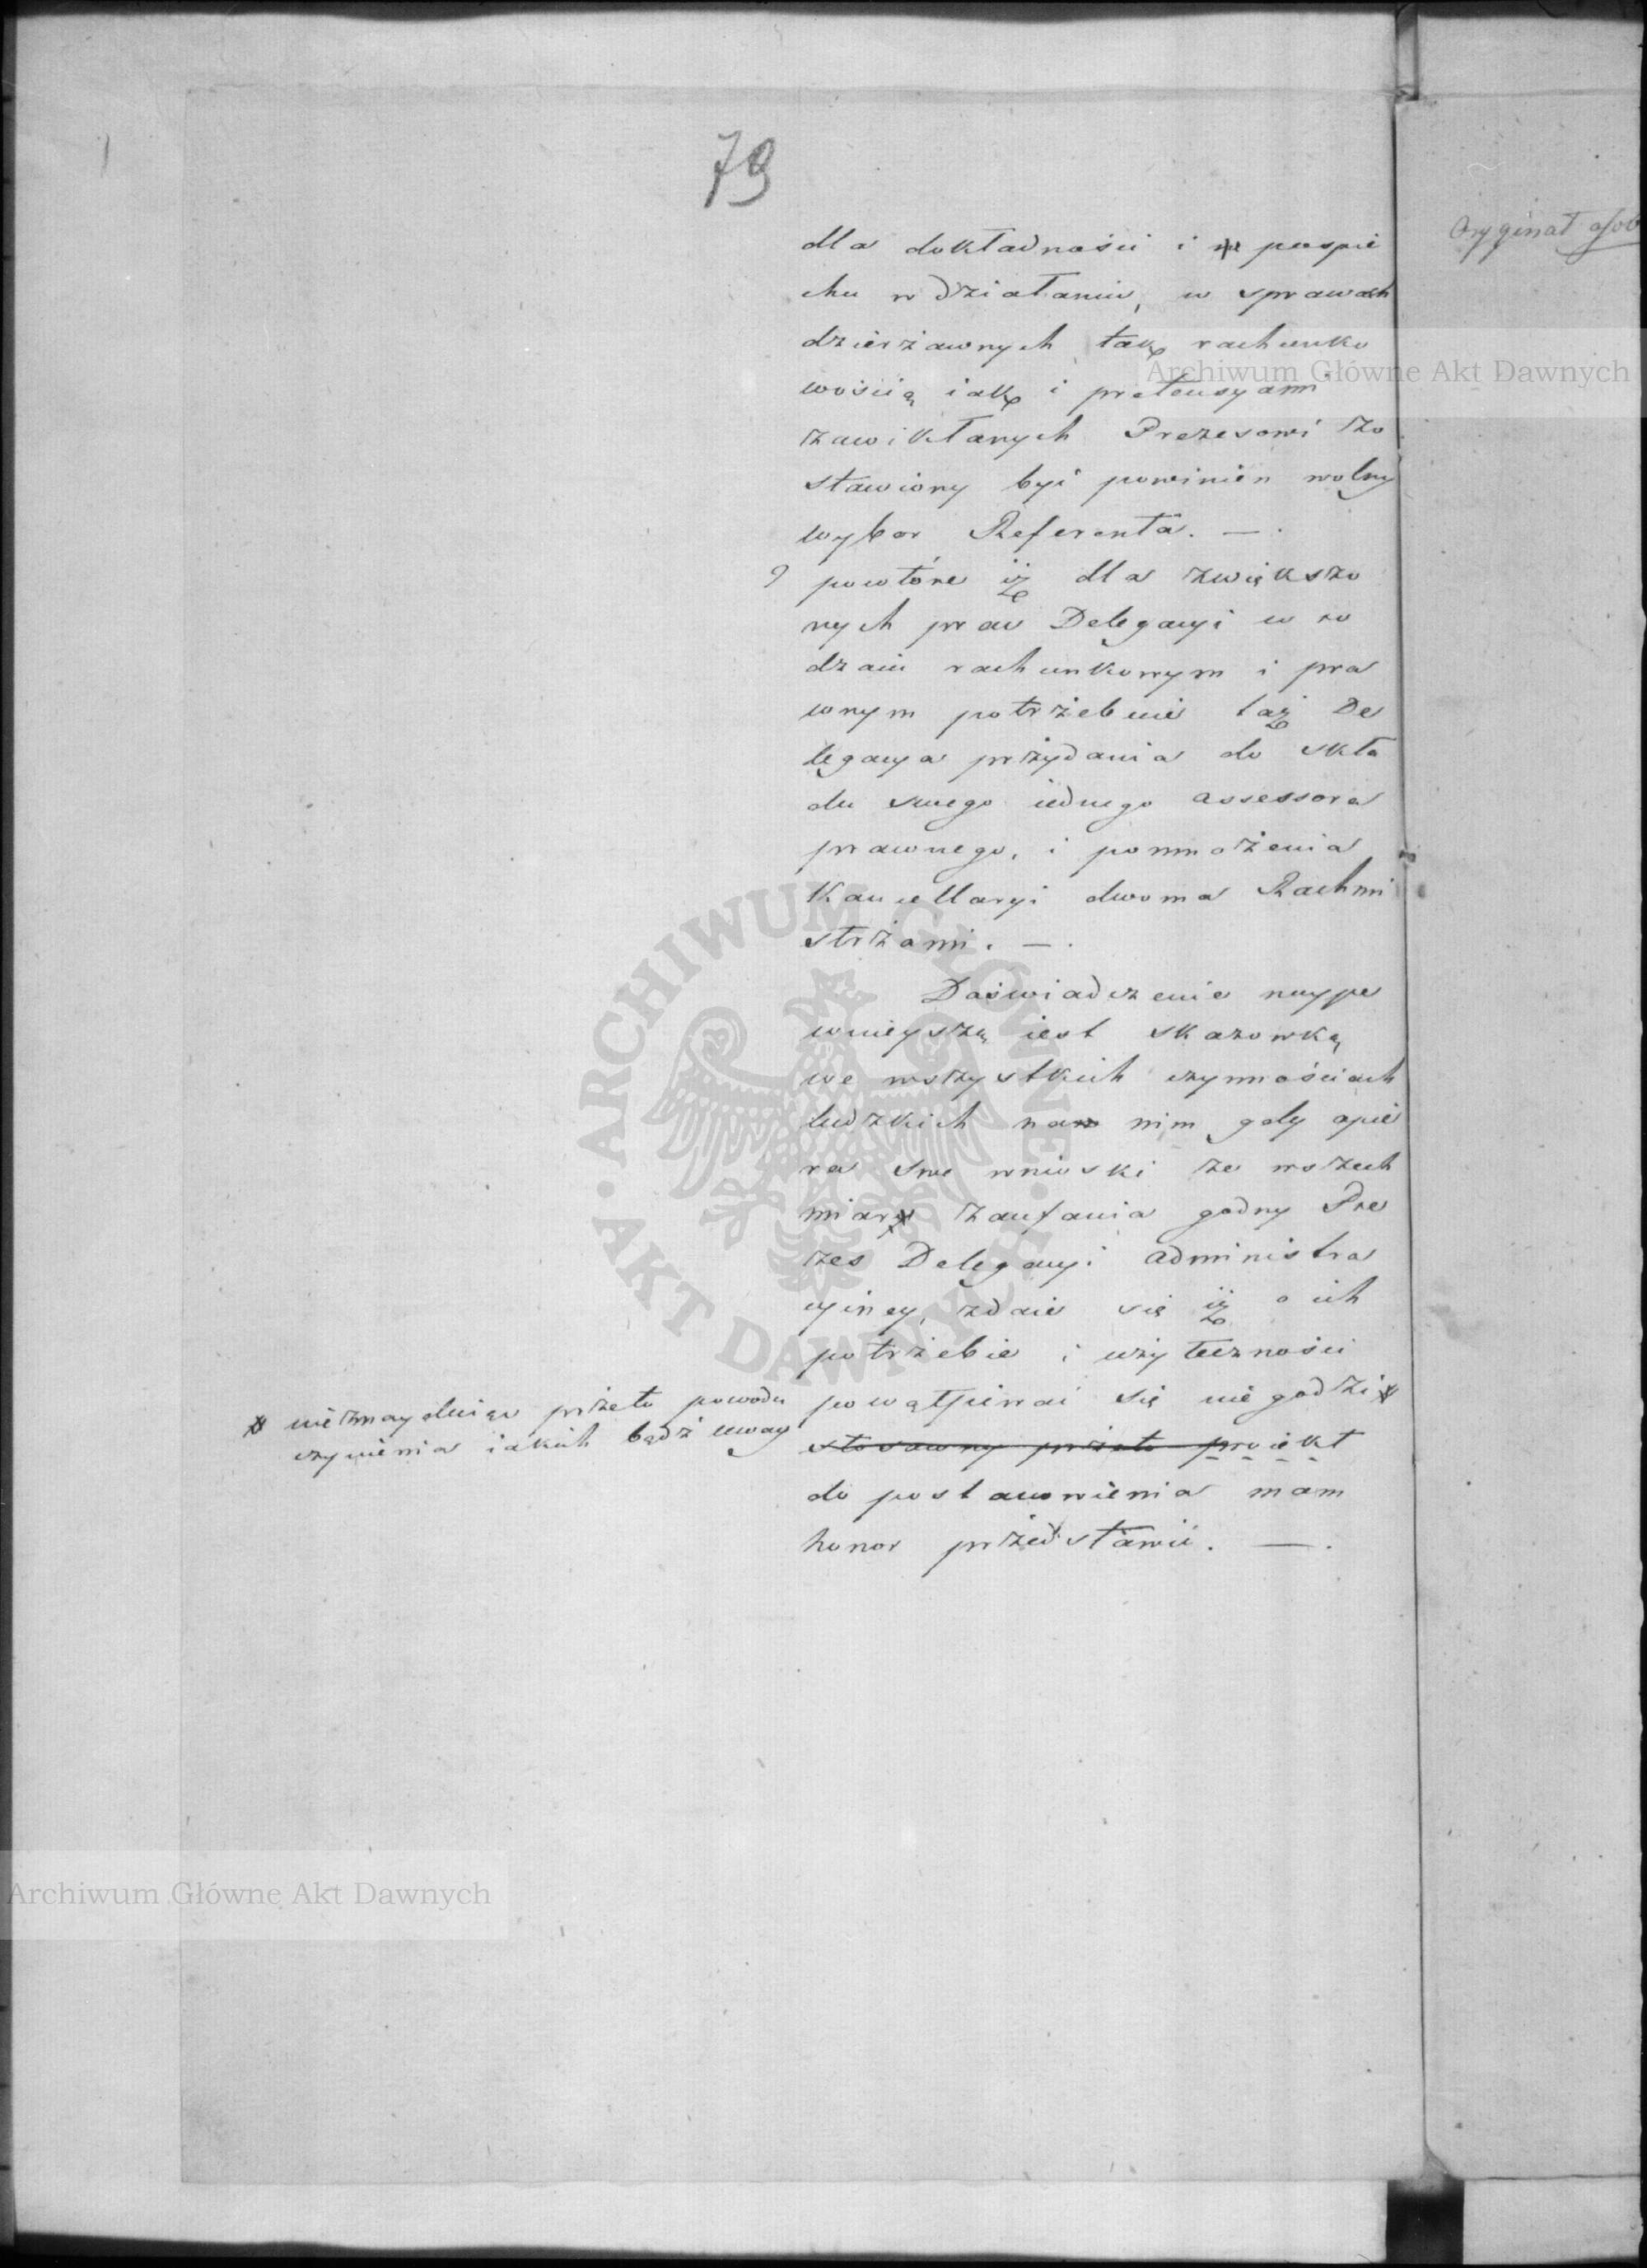 79
dla dokładności i pospie
chu w działaniu, w sprawach
dzierżawnych tak rachunko
wością iak i pretensyami
zawikłanych Prezesowi zo
stawiony być powinien wolny
wybor Referenta. —.
powtóre iż dla zwiększo
nych praw Delegacyi w ro
dzaiu rachunkowym i pra
wnym potrzebuie taż De
legacya przydania do skła
du swego iednego assessora
prawnego, i pomnożenia
Kancellaryi dwoma Rachmi
strzami. —.
Doświadczenie naype
wnieyszą iest skazowką
we wszystkich czynnościach
ludzkich na nim gdy opie
ra swe wnioski ze wszech
miar zaufania godny Pre
zes Delegacyi administra
cyiney, zdaie się iż o ich
potrzebie i użyteczności
powątpiewać się niegodzi
nieznayduiąc przeto powodu
czynienia iakich bądź uwag
stosowny przeto proiekt
do postanowienia mam
honor przedstawić. —.
Oryginał
Archiwum Główne Akt Dawnych
ARCHIWUM GŁÓWNE AKT DAWNYCH
Archiwum Główne Akt Dawnych